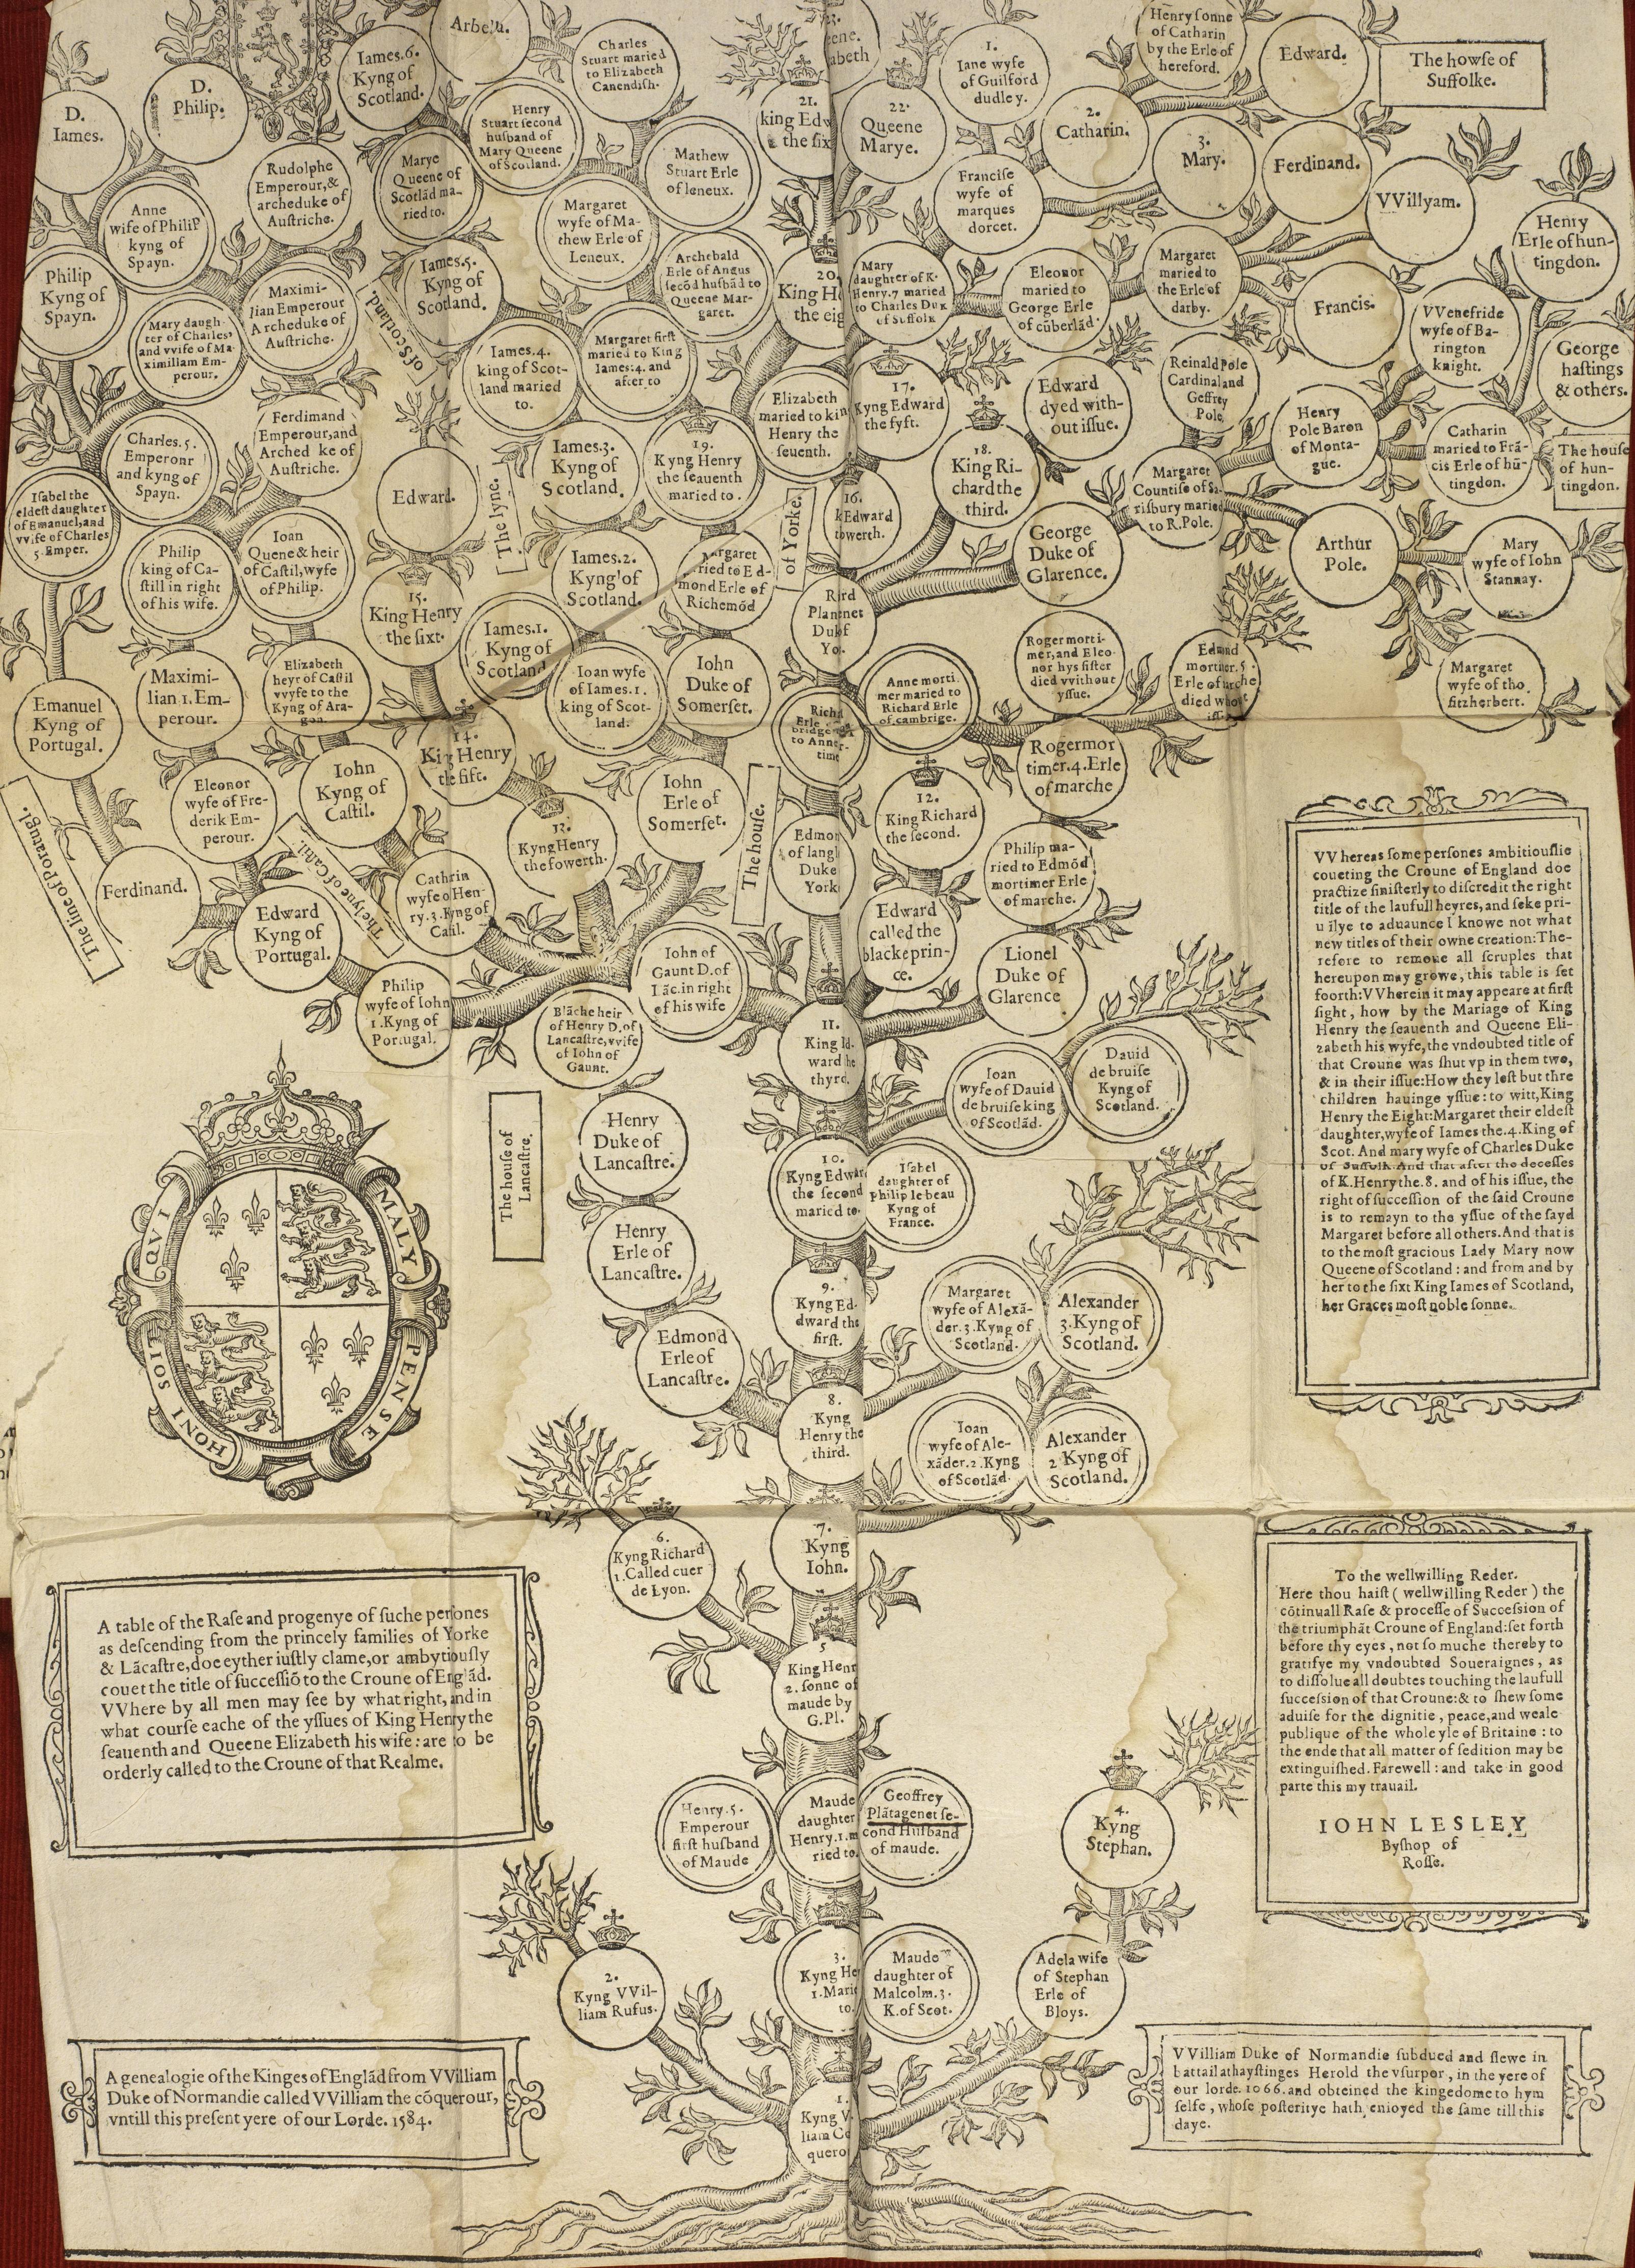 Arbela.
Henry sonne
of Catharin
by the Erle of
hereford.
Edward.
The howse of
Suffolke.
D.
Iames.
D.
Philip.
Iames.6.
Kyng of
Scotland.
Charles
Stuart maried
to Elizabeth
Canendish.
Henry
Stuart second
husband of
Mary Queene
of Scotland.
21.
king Edw
the six
22.
Queene
Marye.
1.
Iane wyfe
of Guilford
dudley.
2.
Catharin.
3.
Mary.
Ferdinand.
VVillyam.
Rudolphe
Emperour,&
archeduke of
Austriche.
Marye
Queene of
Scotlãd ma-
ried to.
Mathew
Stuart Erle
of leneux.
Francise
wyfe of
marques
dorcet.
Henry
Erle of hun-
tingdon.
Anne
wife of Philip
kyng of
Spayn.
Margaret
wyfe of Ma-
thew Erle of
Leneux.
Philip
Kyng of
Spayn.
Iames.5.
Kyng of
Scotland.
of Scotland.
Archebald
Erle of Angus
secõd husbãd to
Queene Mar-
garet.
20.
King He
the eig
Mary
daughter of K.
Henry.7 maried
to Charles Duk
of Suffolk
Eleonor
maried to
George Erle
of cũberlãd.
Margaret
maried to
the Erle of
darby.
Francis.
VVenefride
wyfe of Ba-
rington
knight.
George
hastings
& others.
Mary daugh-
ter of Charles
and vvife of Ma-
ximiliam Em-
perour.
Maximi-
lian Emperour
Archeduke of
Austriche.
Iames.4.
king of Scot-
land maried
to.
Margaret first
maried to King
Iames:4. and
after to
Elizabeth
maried to kin
Henry the
seuenth.
17.
Kyng Edward
the fyft.
Edward
dyed with-
out issue.
Reinald Pole
Cardinal and
Geffrey
Pole.
Henry
Pole Baron
of Monta-
gue.
Catharin
maried to Frã-
cis Erle of hũ-
tingdon.
The house
of hun-
tingdon.
Charles.5.
Emperour
and kyng of
Spayn.
Ferdimand
Emperour,and
Arched ke of
Austriche.
Edward.
The lyne.
Iames.3.
Kyng of
Scotland.
19.
Kyng Henry
the seauenth
maried to.
of Yorke.
16.
kEdward
fowerth.
18.
King Ri-
chard the
third.
Margaret
Countise of Sa-
risbury maried
to R.Pole.
Isabel the
eldest daughter
of Emanuel,and
vvife of Charles
5.Emper.
Philip
king of Ca-
still in right
of his wife.
Ioan
Quene & heir
of Castil,wyfe
of Philip.
Iames.2.
Kyng of
Scotland.
Margaret
ried to Ed-
mond Erle of
Richemõd
George
Duke of
Glarence.
Arthur
Pole.
Mary
wyfe of Iohn
Stannay.
15.
King Henry
the sixt.
Iames.1.
Kyng of
Scotland
Emanuel
Kyng of
Portugal.
Maximi-
lian 1.Em-
perour.
Elizabeth
heyr of Castil
vvyfe to the
Kyng of Ara-
gon.
Ioan wyfe
of Iames.1.
king of Scot-
land.
Iohn
Duke of
Somerset.
Anne morti-
mer maried to
Richard Erle
of cambrige.
Roger morti-
mer,and Eleo-
nor hys sister
died vvithout
yssue.
Margaret
wyfe of tho.
fitzherbert.
14.
Henry
fift.
Rogermor
timer.4.Erle
of marche
Eleonor
wyfe of Fre-
derik Em-
perour.
Iohn
Kyng of
Castil.
13.
Kyng Henry
the fowerth.
Iohn
Erle of
Somerset.
The house.
Edmon
of langl
Duke
York
12.
King Richard
the second.
Philip ma-
ried to Edmõd
mortimer Erle
of marche.
The line of Poratugl.
Ferdinand.
The lyne of Castil.
Edward
Kyng of
Portugal.
Cathrin
wyfe o Hen-
ry.3.Kyng of
Castil.
Edward
called the
blacke prin-
ce.
Philip
wyfe of Iohn
1.Kyng of
Portugal.
Blãche heir
of Henry D.of
Lancastre,vvife
of Iohn of
Gaunt.
Iohn of
Gaunt D.of
Lãc.in right
of his wife
Lionel
Duke of
Glarence
11.
King Ed.
ward the
thyrd.
Ioan
wyfe of Dauid
de bruise king
of Scotlãd.
Dauid
de bruise
Kyng of
Scotland.
VVhereas some persones ambitiouslie
coueting the Croune of England doe
practize sinisterly to discredit the right
title of the laufull heyres,and seke pri-
uilye to aduaunce I knowe not what
new titles of their owne creation:The-
refore to remoue all scruples that
hereupon may growe, this table is set
foorth:VVherein it may appeare at first
sight, how by the Mariage of King
Henry the seauenth and Queene Eli-
zabeth his wyfe,the vndoubted title of
that Croune was shut vp in them two,
& in their issue:How they left but thre
children hauinge yssue: to witt,King
Henry the Eight:Margaret their eldest
daughter,wyfe of Iames the.4.King of
Scot. And mary wyfe of Charles Duke
of Suffolk And that after the decesses
of K.Henry the.8. and of his issue, the
right of succession of the said Croune
is to remayn to the yssue of the sayd
Margaret before all others.And that is
to the most gracious Lady Mary now
Queene of Scotland: and from and by
her to the sixt King Iames of Scotland,
her Graces most noble sonne.
The house of
Lancastre.
Henry
Duke of
Lancastre.
10.
Kyng Edwar
the second
maried to.
Isabel
daughter of
Philip le beau
Kyng of
France.
Henry
Erle of
Lancastre.
9.
Kyng Ed-
dward the
first.
Margaret
wyfe of Alexã-
der.3.Kyng of
Scotland.
Alexander
3.Kyng of
Scotland.
Edmond
Erle of
Lancastre.
HONI SOIT QVI MALY PENSE
8.
Kyng
Henry the
third.
Ioan
wyfe of Ale-
xãder.2.Kyng
of Scotlãd.
Alexander
2 Kyng of
Scotland.
6.
Kyng Richard
1.Called cuer
de Lyon.
7.
Kyng
Iohn.
A table of the Rase and progenye of suche persones
as descending from the princely families of Yorke
& Lãcastre,doe eyther iustly clame,or ambytiously
couet the title of successiõ to the Croune of Englãd.
VVhere by all men may see by what right,and in
what course eache of the yssues of King Henry the
seauenth and Queene Elizabeth his wife: are to be
orderly called to the Croune of that Realme.
5
King Henr
2.sonne of
maude by
G.Pl.
To the wellwilling Reder.
Here thou haist ( wellwilling Reder ) the
cõtinuall Rase & processe of Succession of
the triumphãt Croune of England:set forth
before thy eyes, not so muche thereby to
gratifye my vndoubted Soueraignes, as
to dissolue all doubtes touching the laufull
succession of that Croune:& to shew some
aduise for the dignitie, peace,and weale
publique of the whole yle of Britaine : to
the ende that all matter of sedition may be
extinguished. Farewell : and take in good
parte this my trauail.
IOHN LESLEY
Byshop of
Rosse.
Henry.5.
Emperour
first husband
of Maude
Maude
daughter
Henry.1.m
ried to.
Geoffrey
Plãtagenet se-
cond Husband
of maude.
4.
Kyng
Stephan.
2.
Kyng VVil-
liam Rufus.
3.
Kyng He
1.Marie
to.
Maude
daughter of
Malcolm.3.
K.of Scot.
Adela wife
of Stephan
Erle of
Bloys.
A genealogie of the Kinges of Englãd from VVilliam
Duke of Normandie called VVilliam the cõquerour,
vntill this present yere of our Lorde. 1584.
1.
Kyng V
liam Co
querou
VVilliam Duke of Normandie subdued and slewe in
battail at haystinges Herold the vsurpor, in the yere of
our lorde. 1066.and obteined the kingedome to hym
selfe, whose posteritye hath enioyed the same till this
daye.